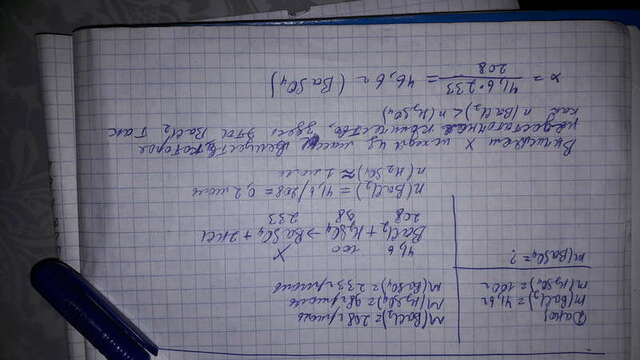 Дано:
m(BaCl₂) = 41,6 г
m(H₂SO₄) = 100 г
m(BaSO₄ = ?
M(BaCl₂) = 208 г/моль
M(H₂SO₄) = 98 г/моль
M(BaSO₄) = 233 г/моль
41,6 100 X
BaCl₂ + H₂SO₄ → BaSO₄ + 2HCl
208 98 233
n(BaCl₂) = 41,6/208 = 0,2 моль
n(H₂SO₄) ≈ 1 моль
Вычисляем X исходя из массы вещества, которое
недостаточное количество, здесь это BaCl₂ так
как n(BaCl₂) < n(H₂SO₄)
x = 41,6·233 / 208 = 46,6 г (BaSO₄)